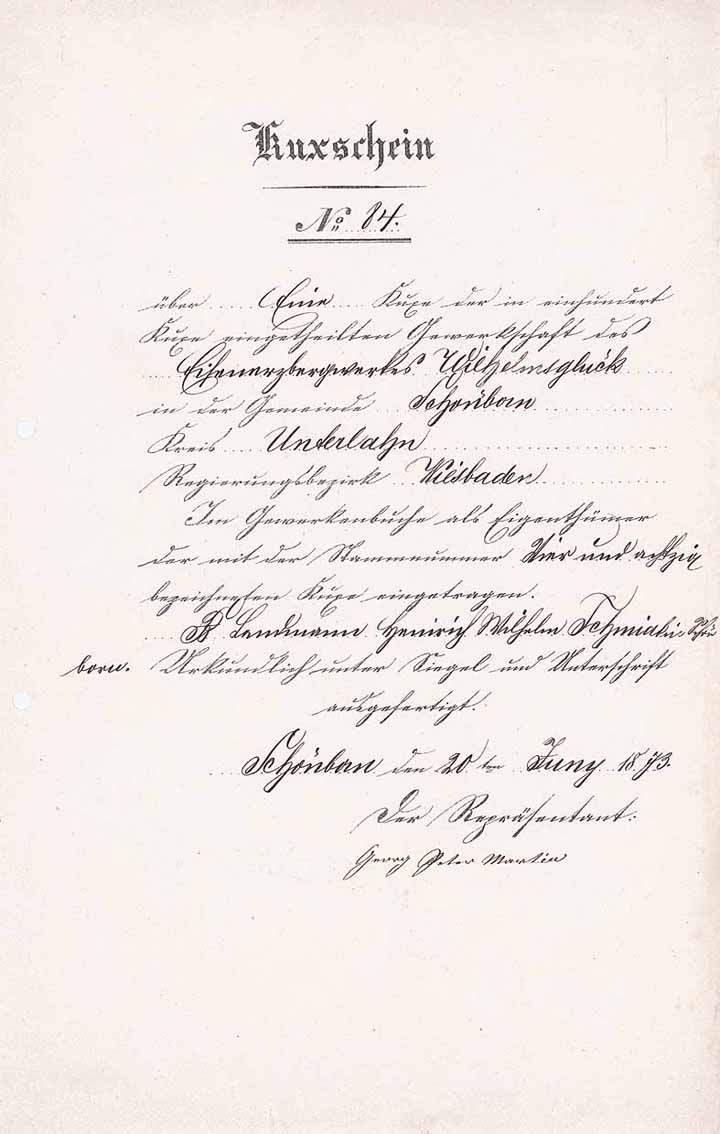 Kuxschein
No 84.
über Eine Kuxe der in einhundert
Kuxe eingetheilten Gewerkschaft des
Eisenerzbergwerkes Wilhelmsglück
in der Gemeinde Schönborn
Kreis Unterlahn
Regierungsbezirk Wiesbaden
Im Gewerkenbuche als Eigenthümer
der mit der Stammnummer Vier und achtzig
bezeichneten Kuxe eingetragen.
Landmann Heinrich Wilhelm Schmidt in Schön
born. Urkundlich unter Siegel und Unterschrift
ausgefertigt.
Schönborn den 20ten Juny 1873.
Der Repräsentant:
Georg Peter Martin